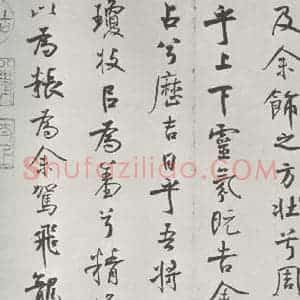 及余飾之方壯兮周
乎上下靈氛既告余
占兮歷吉日乎吾將
瓊枝㠯為羞兮精
以為粻為余駕飛龍
Shufaziliao.com